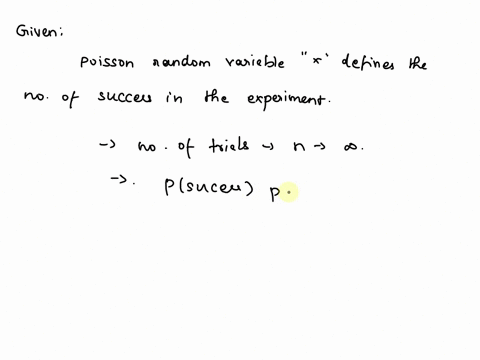 Given:
Poisson random variable "x" defines the
no. of success in the experiment.
→ no. of trials → n → ∞.
→. P(sucess) p